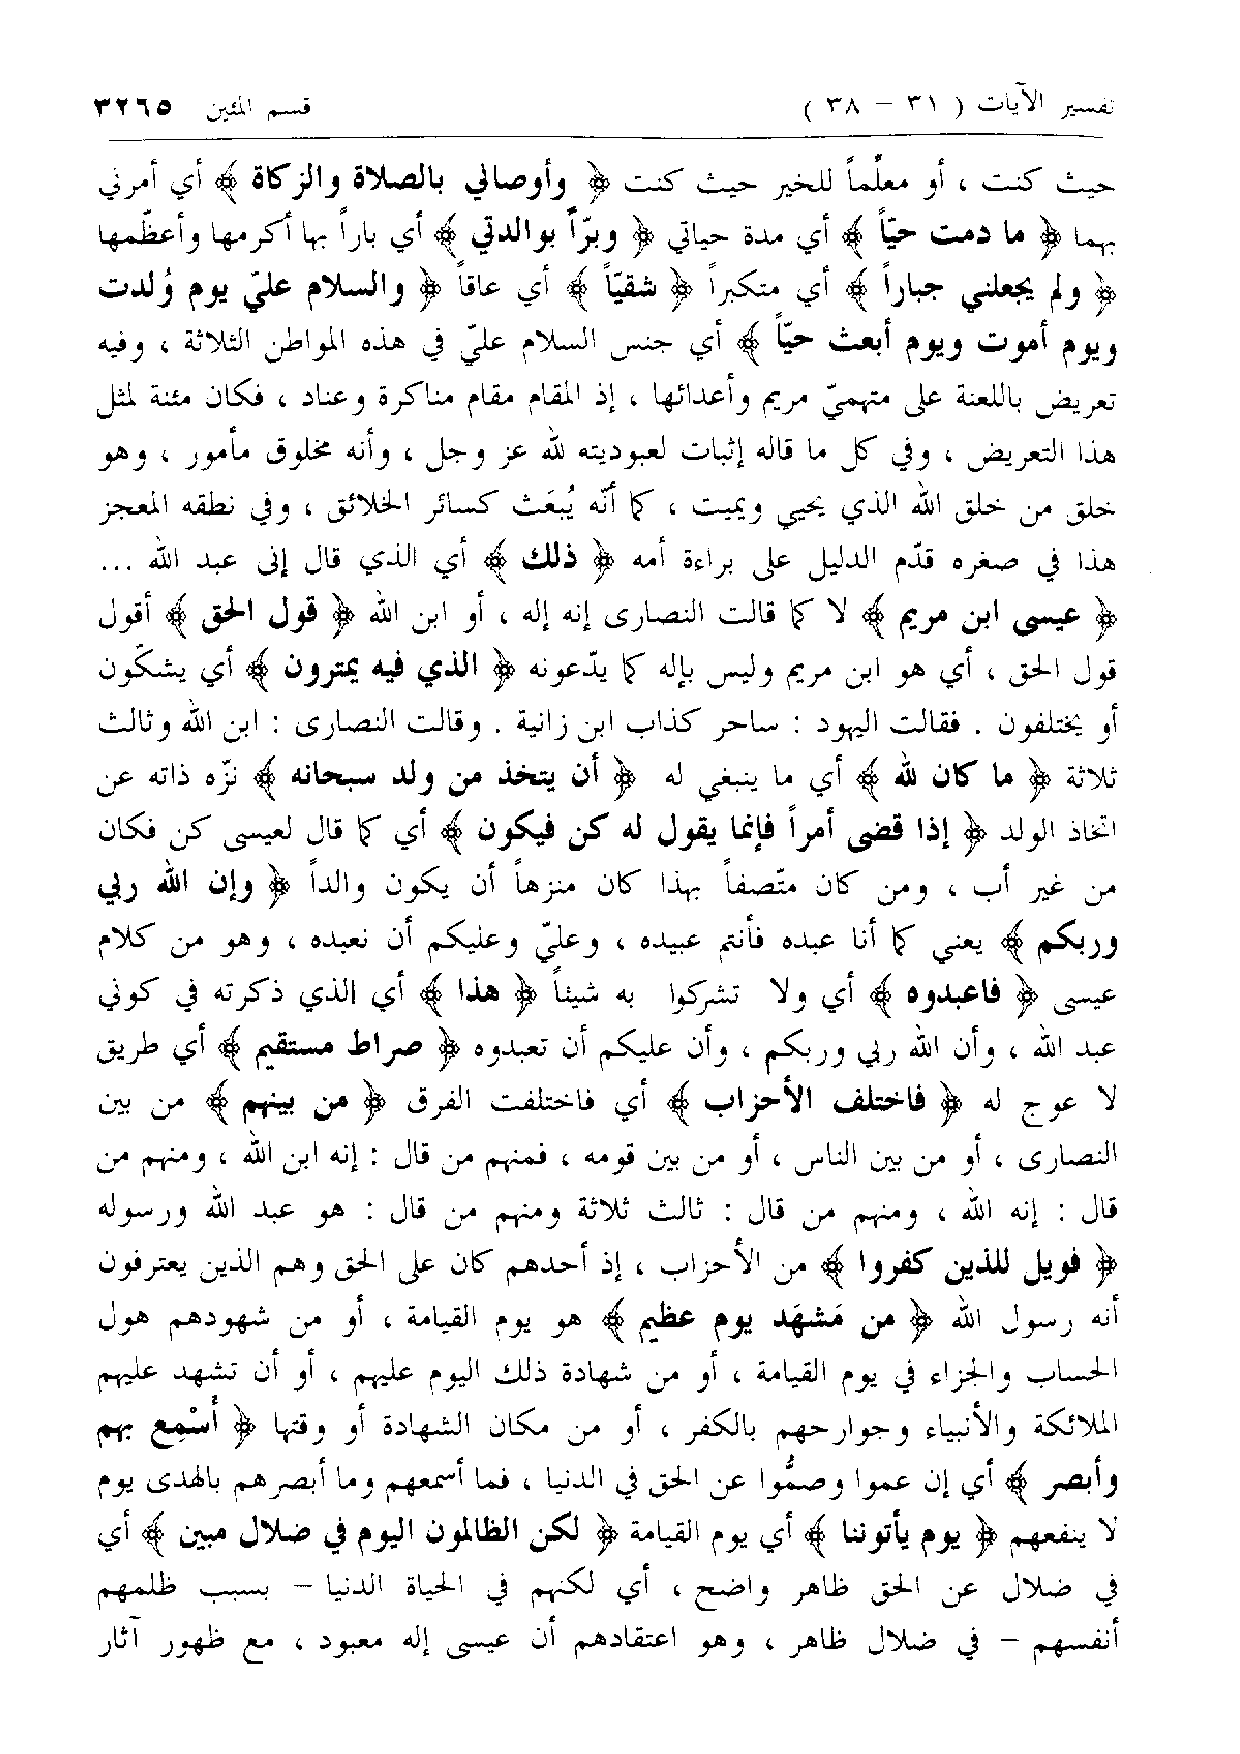 تفسير الآيات ( ٣١ - ٣٨ ) قسم المئين ٣٢٦٥
حيث كنت ، أو معلّماً للخير حيث كنت ﴿ وأوصاني بالصلاة والزكاة ﴾ أي أمرني
بهما ﴿ ما دمت حيّاً ﴾ أي مدة حياتي ﴿ وبرّاً بوالدتي ﴾ أي باراً بها أكرمها وأعظّمها
﴿ ولم يجعلني جباراً ﴾ أي متكبراً ﴿ شقيّاً ﴾ أي عاقاً ﴿ والسلام عليّ يوم وُلدت
ويوم أموت ويوم أبعث حيّاً ﴾ أي جنس السلام عليّ في هذه المواطن الثلاثة ، وفيه
تعريض باللعنة على متهميّ مريم وأعدائها ، إذ المقام مقام مناكرة وعناد ، فكان مئنة لمثل
هذا التعريض ، وفي كل ما قاله إثبات لعبوديته لله عز وجل ، وأنه مخلوق مأمور ، وهو
خلق من خلق الله الذي يحيي ويميت ، كما أنّه يُبعَث كسائر الخلائق ، وفي نطقه المعجز
هذا في صغره قدّم الدليل على براءة أمه ﴿ ذلك ﴾ أي الذي قال إني عبد الله ...
﴿ عيسى ابن مريم ﴾ لا كما قالت النصارى إنه إله ، أو ابن الله ﴿ قول الحق ﴾ أقول
قول الحق ، أي هو ابن مريم وليس بإله كما يدّعونه ﴿ الذي فيه يمترون ﴾ أي يشكّون
أو يختلفون . فقالت اليهود : ساحر كذاب ابن زانية . وقالت النصارى : ابن الله وثالث
ثلاثة ﴿ ما كان لله ﴾ أي ما ينبغي له ﴿ أن يتخذ من ولد سبحانه ﴾ نزّه ذاته عن
اتخاذ الولد ﴿ إذا قضى أمراً فإنما يقول له كن فيكون ﴾ أي كما قال لعيسى كن فكان
من غير أب ، ومن كان متّصفاً بهذا كان منزهاً أن يكون والداً ﴿ وإن الله ربي
وربكم ﴾ يعني كما أنا عبده فأنتم عبيده ، وعليّ وعليكم أن نعبده ، وهو من كلام
عيسى ﴿ فاعبدوه ﴾ أي ولا تشركوا به شيئاً ﴿ هذا ﴾ أي الذي ذكرته في كوني
عبد الله ، وأن الله ربي وربكم ، وأن عليكم أن تعبدوه ﴿ صراط مستقيم ﴾ أي طريق
لا عوج له ﴿ فاختلف الأحزاب ﴾ أي فاختلفت الفرق ﴿ من بينهم ﴾ من بين
النصارى ، أو من بين الناس ، أو من بين قومه ، فمنهم من قال : إنه ابن الله ، ومنهم من
قال : إنه الله ، ومنهم من قال : ثالث ثلاثة ومنهم من قال : هو عبد الله ورسوله
﴿ فويل للذين كفروا ﴾ من الأحزاب ، إذ أحدهم كان على الحق وهم الذين يعترفون
أنه رسول الله ﴿ من مَشهَد يوم عظيم ﴾ هو يوم القيامة ، أو من شهودهم هول
الحساب والجزاء في يوم القيامة ، أو من شهادة ذلك اليوم عليهم ، أو أن تشهد عليهم
الملائكة والأنبياء وجوارحهم بالكفر ، أو من مكان الشهادة أو وقتها ﴿ أَسْمِع بهم
وأبصر ﴾ أي إن عموا وصمُّوا عن الحق في الدنيا ، فما أسمعهم وما أبصرهم بالهدى يوم
لا ينفعهم ﴿ يوم يأتوننا ﴾ أي يوم القيامة ﴿ لكن الظالمون اليوم في ضلال مبين ﴾ أي
في ضلال عن الحق ظاهر واضح ، أي لكنهم في الحياة الدنيا - بسبب ظلمهم
أنفسهم - في ضلال ظاهر ، وهو اعتقادهم أن عيسى إله معبود ، مع ظهور آثار